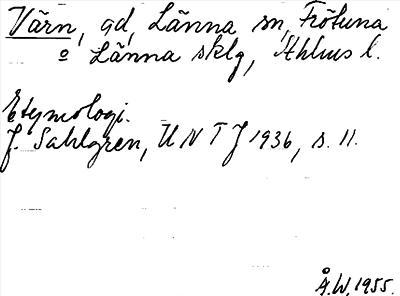 Värn, gd, Länna sn, Frötuna
o Länna sklg, Sthlms l.
Etymologi.
J. Sahlgren, U N T J 1936, s. 11.
Å.W. 1955.